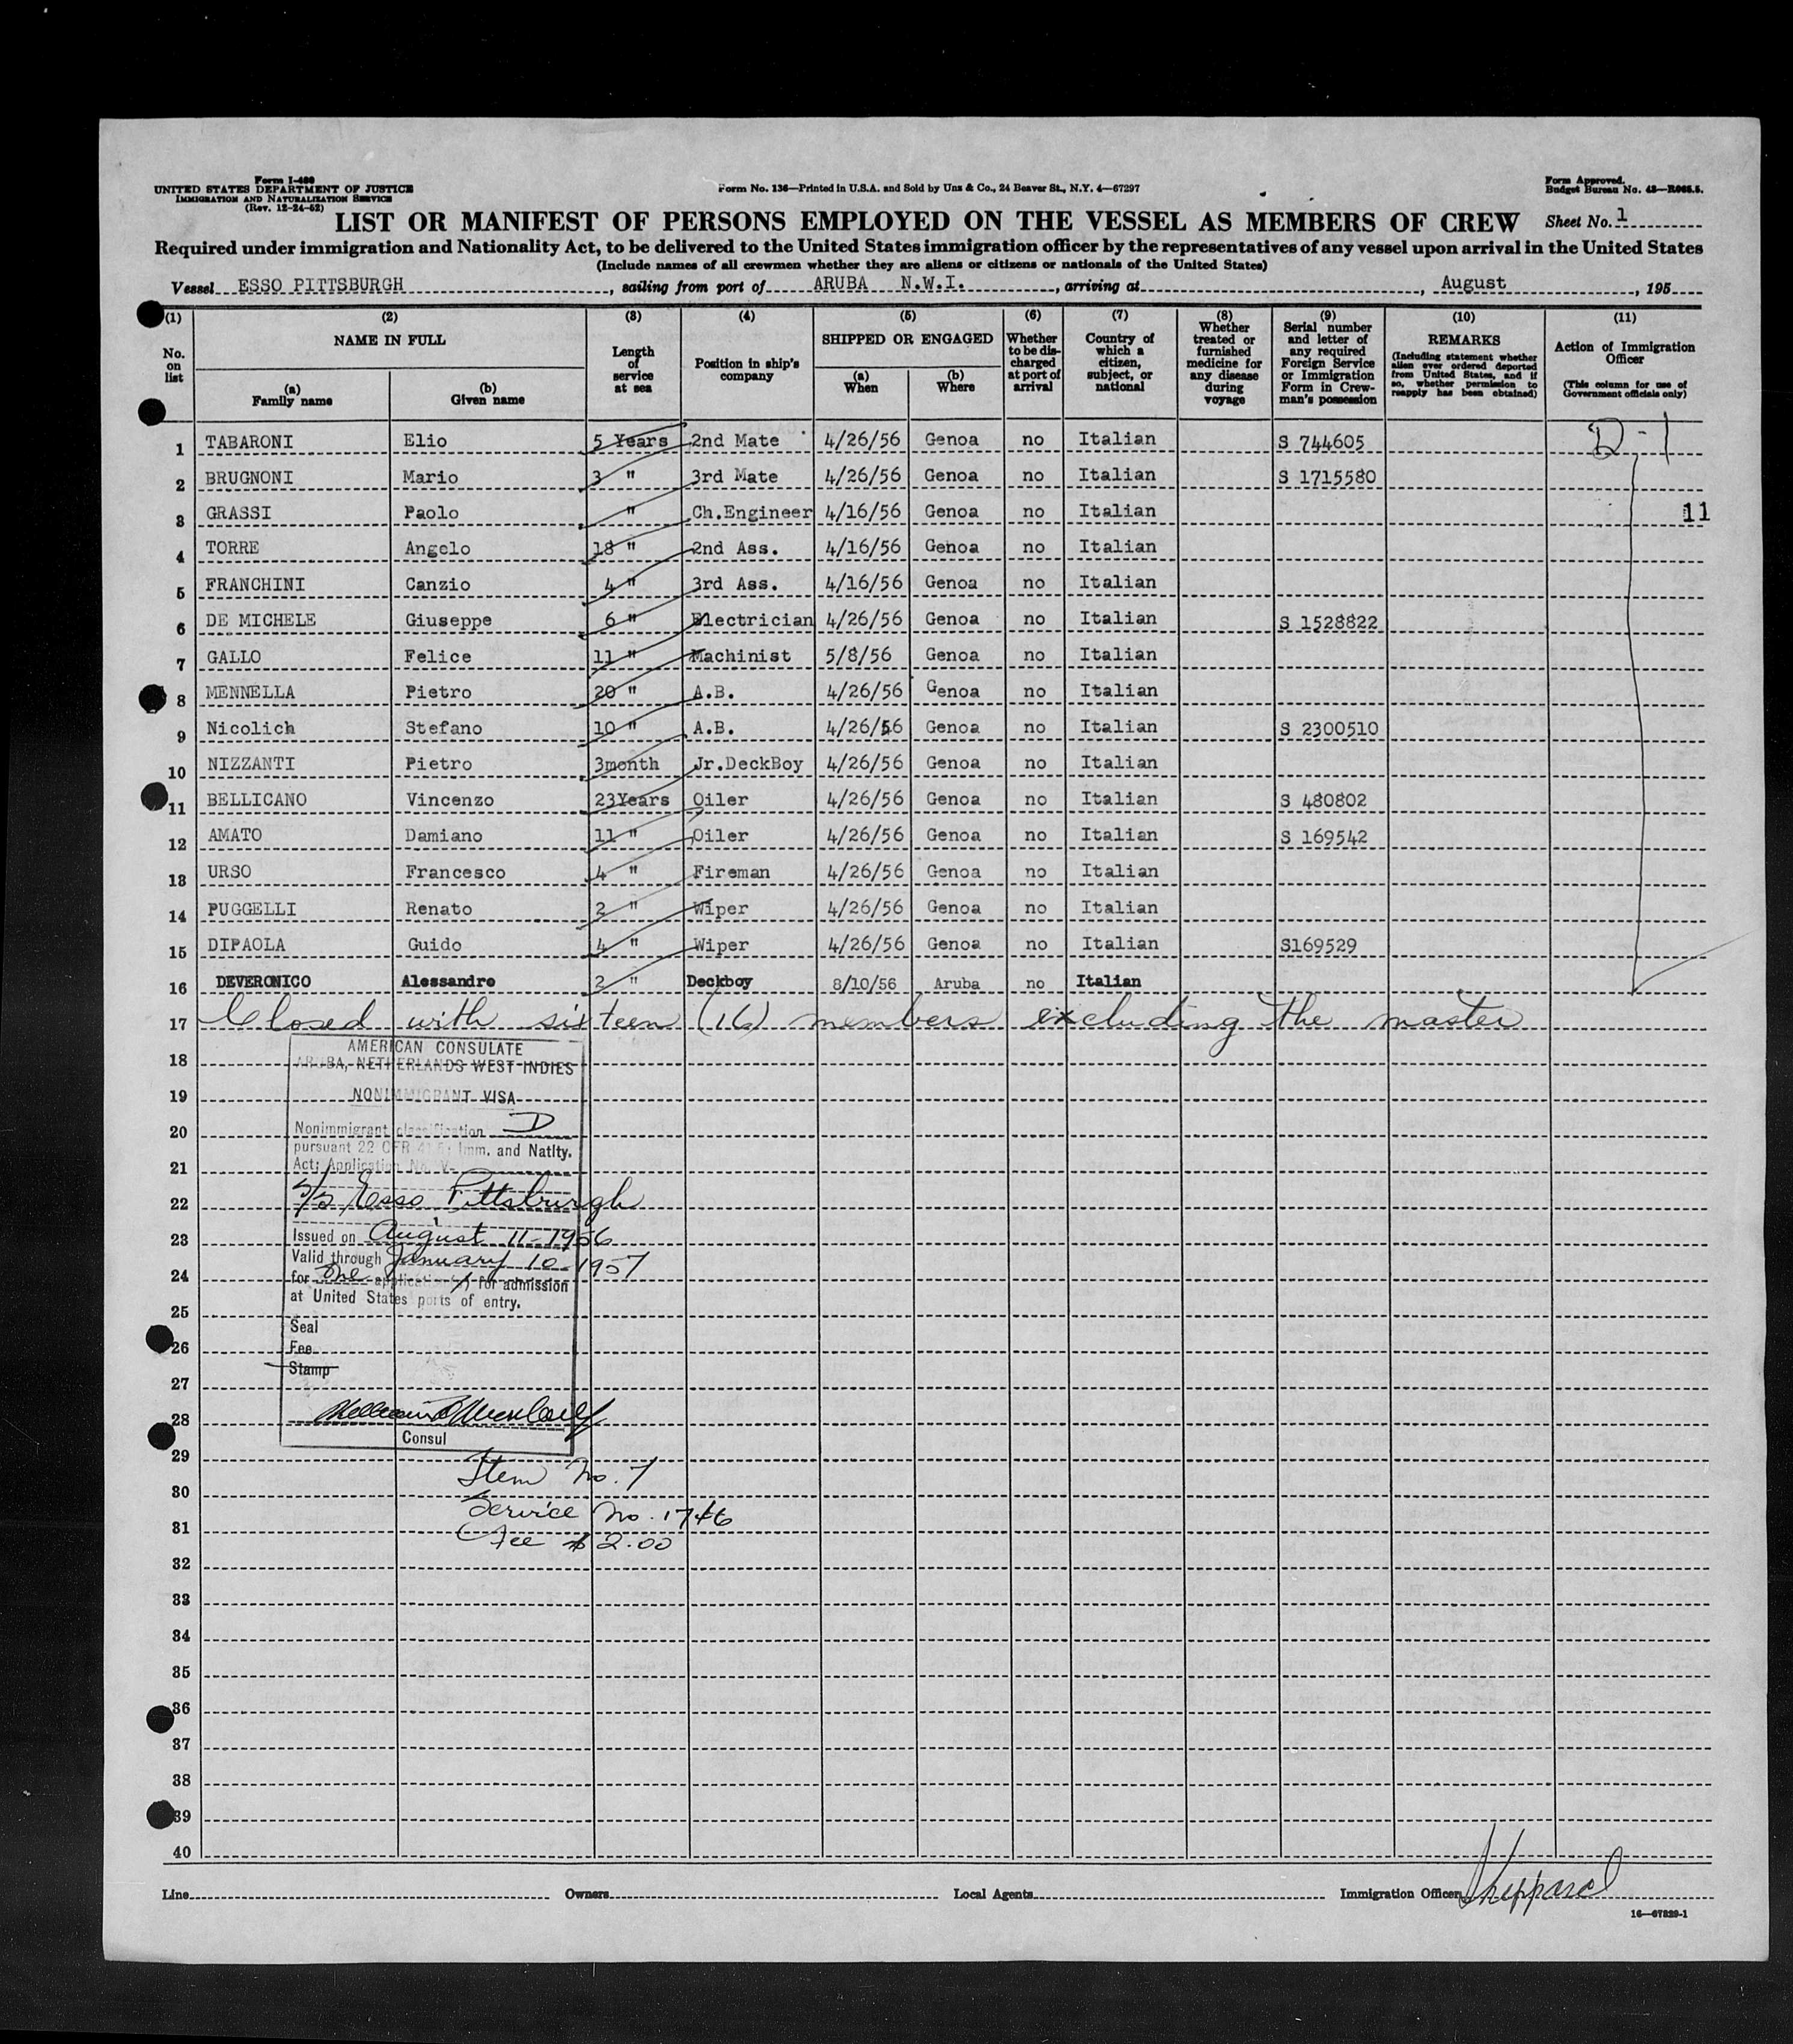 Form I-480
UNITED STATES DEPARTMENT OF JUSTICE
IMMIGRATION AND NATURALIZATION SERVICE
(Rev. 12-24-52)
Form No. 136—Printed in U.S.A. and Sold by Unz & Co., 24 Beaver St., N.Y. 4—67297
Form Approved.
Budget Bureau No.
LIST OR MANIFEST OF PERSONS EMPLOYED ON THE VESSEL AS MEMBERS OF CREW Sheet No. 1
Required under immigration and Nationality Act, to be delivered to the United States immigration officer by the representatives of any vessel upon arrival in the United States
(Include names of all crewmen whether they are aliens or citizens or nationals of the United States)
Vessel ESSO PITTSBURGH, sailing from port of ARUBA N.W.I., arriving at, August, 195
(1) No. on list
(2) NAME IN FULL
(a) Family name
(b) Given name
(3) Length of service at sea
(4) Position in ship's company
(5) SHIPPED OR ENGAGED
(a) When
(b) Where
(6) Whether to be discharged at port of arrival
(7) Country of which a citizen, subject, or national
(8) Whether treated or furnished medicine for any disease during voyage
(9) Serial number and letter of any required Foreign Service or Immigration Form in Crewman's possession
(10) REMARKS (Including statement whether alien ever ordered deported from United States, and if so, whether permission to reapply has been obtained)
(11) Action of Immigration Officer (This column for use of Government officials only)
1 TABARONI Elio 5 Years 2nd Mate 4/26/56 Genoa no Italian S 744605 D-1
2 BRUGNONI Mario 3 " 3rd Mate 4/26/56 Genoa no Italian S 1715580
3 GRASSI Paolo " Ch.Engineer 4/16/56 Genoa no Italian 11
4 TORRE Angelo 18 " 2nd Ass. 4/16/56 Genoa no Italian
5 FRANCHINI Canzio 4 " 3rd Ass. 4/16/56 Genoa no Italian
6 DE MICHELE Giuseppe 6 " Electrician 4/26/56 Genoa no Italian S 1528822
7 GALLO Felice 11 " Machinist 5/8/56 Genoa no Italian
8 MENNELLA Pietro 20 " A.B. 4/26/56 Genoa no Italian
9 Nicolich Stefano 10 " A.B. 4/26/56 Genoa no Italian S 2300510
10 NIZZANTI Pietro 3month Jr.DeckBoy 4/26/56 Genoa no Italian
11 BELLICANO Vincenzo 23Years Oiler 4/26/56 Genoa no Italian S 480802
12 AMATO Damiano 11 " Oiler 4/26/56 Genoa no Italian S 169542
13 URSO Francesco 4 " Fireman 4/26/56 Genoa no Italian
14 PUGGELLI Renato 2 " Wiper 4/26/56 Genoa no Italian
15 DIPAOLA Guido 4 " Wiper 4/26/56 Genoa no Italian S169529
16 DEVERONICO Alessandro 2 " Deckboy 8/10/56 Aruba no Italian
17 Closed with sixteen (16) members excluding the master
AMERICAN CONSULATE
18 ARUBA, NETHERLANDS WEST INDIES
19 NONIMMIGRANT VISA
20 Nonimmigrant classification D
pursuant 22 CFR Imm. and Natlty.
21 Act; Application No. V-
22 S/S Esso Pittsburgh
23 Issued on August 11-1956
Valid through January 10-1957
24 for One application(s) for admission
at United States ports of entry.
25
Seal
26 Fee
Stamp
27
28
Consul
29 Item No. 7
30 Service No. 1746
31 Fee $2.00
32
33
34
35
36
37
38
39
40
Line Owners Local Agents Immigration Officer Sheppard
16—67329-1